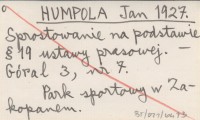 HUMPOLA Jan 1927.
Sprostowanie na podstawie
§ 19 ustawy prasowej. —
Góral 3, nr 7.
Park sportowy w Za-
kopanem.